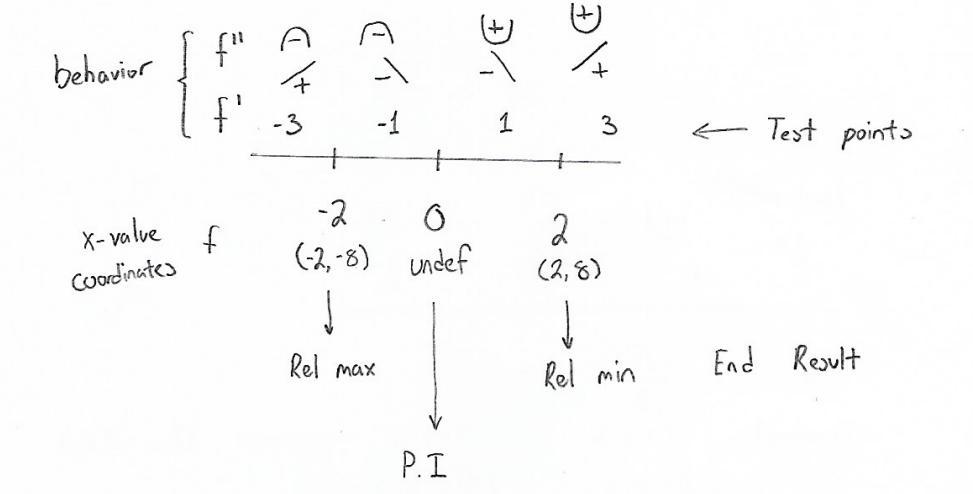 behavior { f" - - + +
+ - - +
f' -3 -1 1 3 ← Test points
-2 0 2
x-value f
coordinates (-2,-8) undef (2,8)
Rel max Rel min End Result
P.I